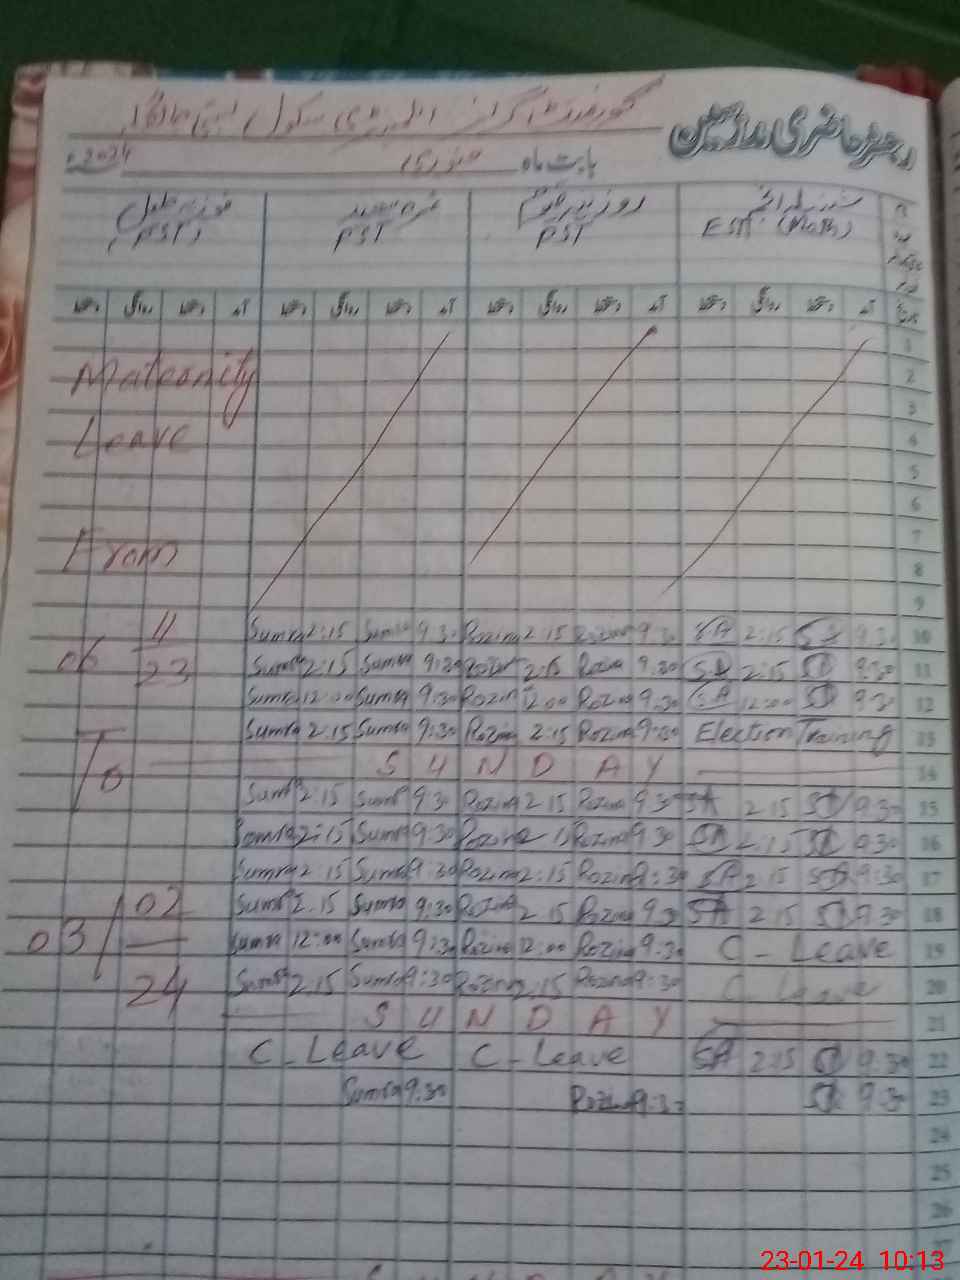 رجسٹر حاضری ملازمین
گورنمنٹ گرلز ایلیمنٹری سکول بستی
بابت ماہ جنوری 2024ء
روزینہ
EST (Math) PST PST PST
آمد دستخط روانگی دستخط آمد دستخط روانگی دستخط آمد دستخط روانگی دستخط آمد دستخط روانگی دستخط
تاریخ
1
2 Maternity
3
4 Leave
5
6
7
8 From
9
10 9:30 SA 2:15 SA 9:30 Rozina 2:15 Rozina 9:30 Sumra 2:15 Sumra 11
11 9:30 SA 2:15 SA 9:30 Rozina 2:15 Rozina 9:30 Sumra 2:15 Sumra 06 23
12 9:30 SA 12:00 SA 9:30 Rozina 12:00 Rozina 9:30 Sumra 12:00 Sumra
13 Election Training 9:30 Rozina 2:15 Rozina 9:30 Sumra 2:15 Sumra
14 SUNDAY To
15 9:30 SA 2:15 SA 9:30 Rozina 2:15 Rozina 9:30 Sumra 2:15 Sumra
16 9:30 SA 2:15 SA 9:30 Rozina 2:15 Rozina 9:30 Sumra 2:15 Sumra
17 9:30 SA 2:15 SA 9:30 Rozina 2:15 Rozina 9:30 Sumra 2:15 Sumra
18 9:30 SA 2:15 SA 9:30 Rozina 2:15 Rozina 9:30 Sumra 2:15 Sumra 02
19 C-Leave 9:30 Rozina 12:00 Rozina 9:30 Sumra 12:00 Sumra 03/
20 C-Leave 9:30 Rozina 2:15 Rozina 9:30 Sumra 2:15 Sumra 24
21 SUNDAY
22 9:30 SA 2:15 SA C-Leave C-Leave
23 9:30 SA 9:30 Rozina 9:30 Sumra
24
25
26
27
23-01-24 10:13